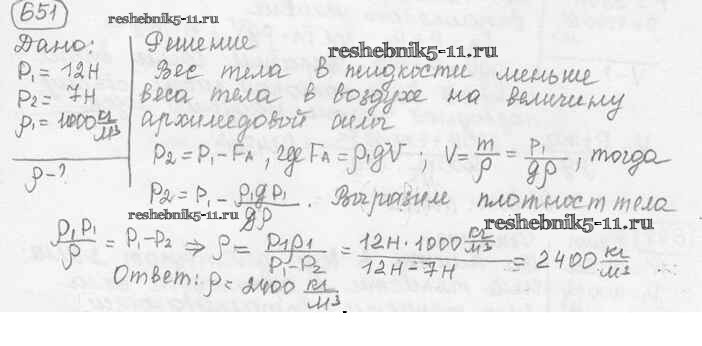 651
reshebnik5-11.ru
Дано: Решение
reshebnik5-11.ru
P₁ = 12Н Вес тела в жидкости меньше
P₂ = 7Н веса тела в воздухе на величину
ρ₁ = 1000 кг/м³ архимедовой силы
ρ-? P₂ = P₁ - F_A, где F_A = ρ₁gV; V = m/ρ = P₁/gρ, тогда
P₂ = P₁ - ρ₁gP₁/gρ. Выразим плотность тела
reshebnik5-11.ru
reshebnik5-11.ru
ρ₁P₁/ρ = P₁-P₂ ⇒ ρ = ρ₁P₁/P₁-P₂ = 12Н·1000 кг/м³/12Н-7Н = 2400 кг/м³
Ответ: ρ = 2400 кг/м³